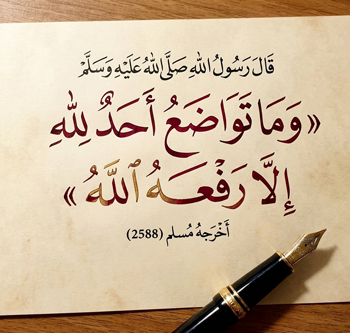 قَالَ رَسُولُ اللهِ صَلَّى اللهُ عَلَيْهِ وَسَلَّمَ
«وَمَا تَوَاضَعُ أَحَدٌ لِلهِ
إِلَّا رَفْعَهُ ٱللَّهُ»
أَخْرَجَهُ مُسلم (2588)